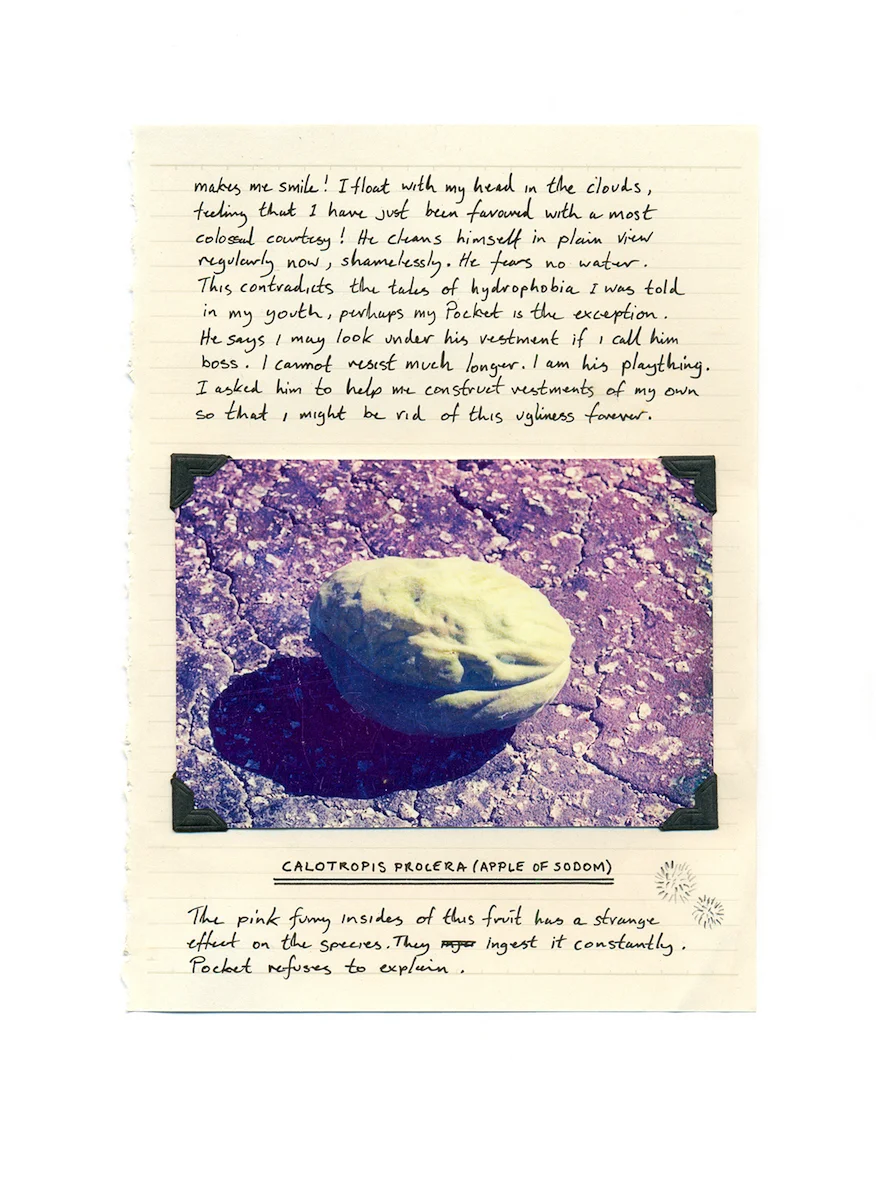 makes me smile! I float with my head in the clouds,
feeling that I have just been favoured with a most
colossal courtesy! He cleans himself in plain view
regularly now, shamelessly. He fears no water.
This contradicts the tales of hydrophobia I was told
in my youth, perhaps my Pocket is the exception.
He says I may look under his vestment if I call him
boss. I cannot resist much longer. I am his plaything.
I asked him to help me construct vestments of my own
so that I might be rid of this ugliness forever.
CALOTROPIS PROCERA (APPLE OF SODOM)
The pink furry insides of this fruit has a strange
effect on the species. They ingest it constantly.
Pocket refuses to explain.